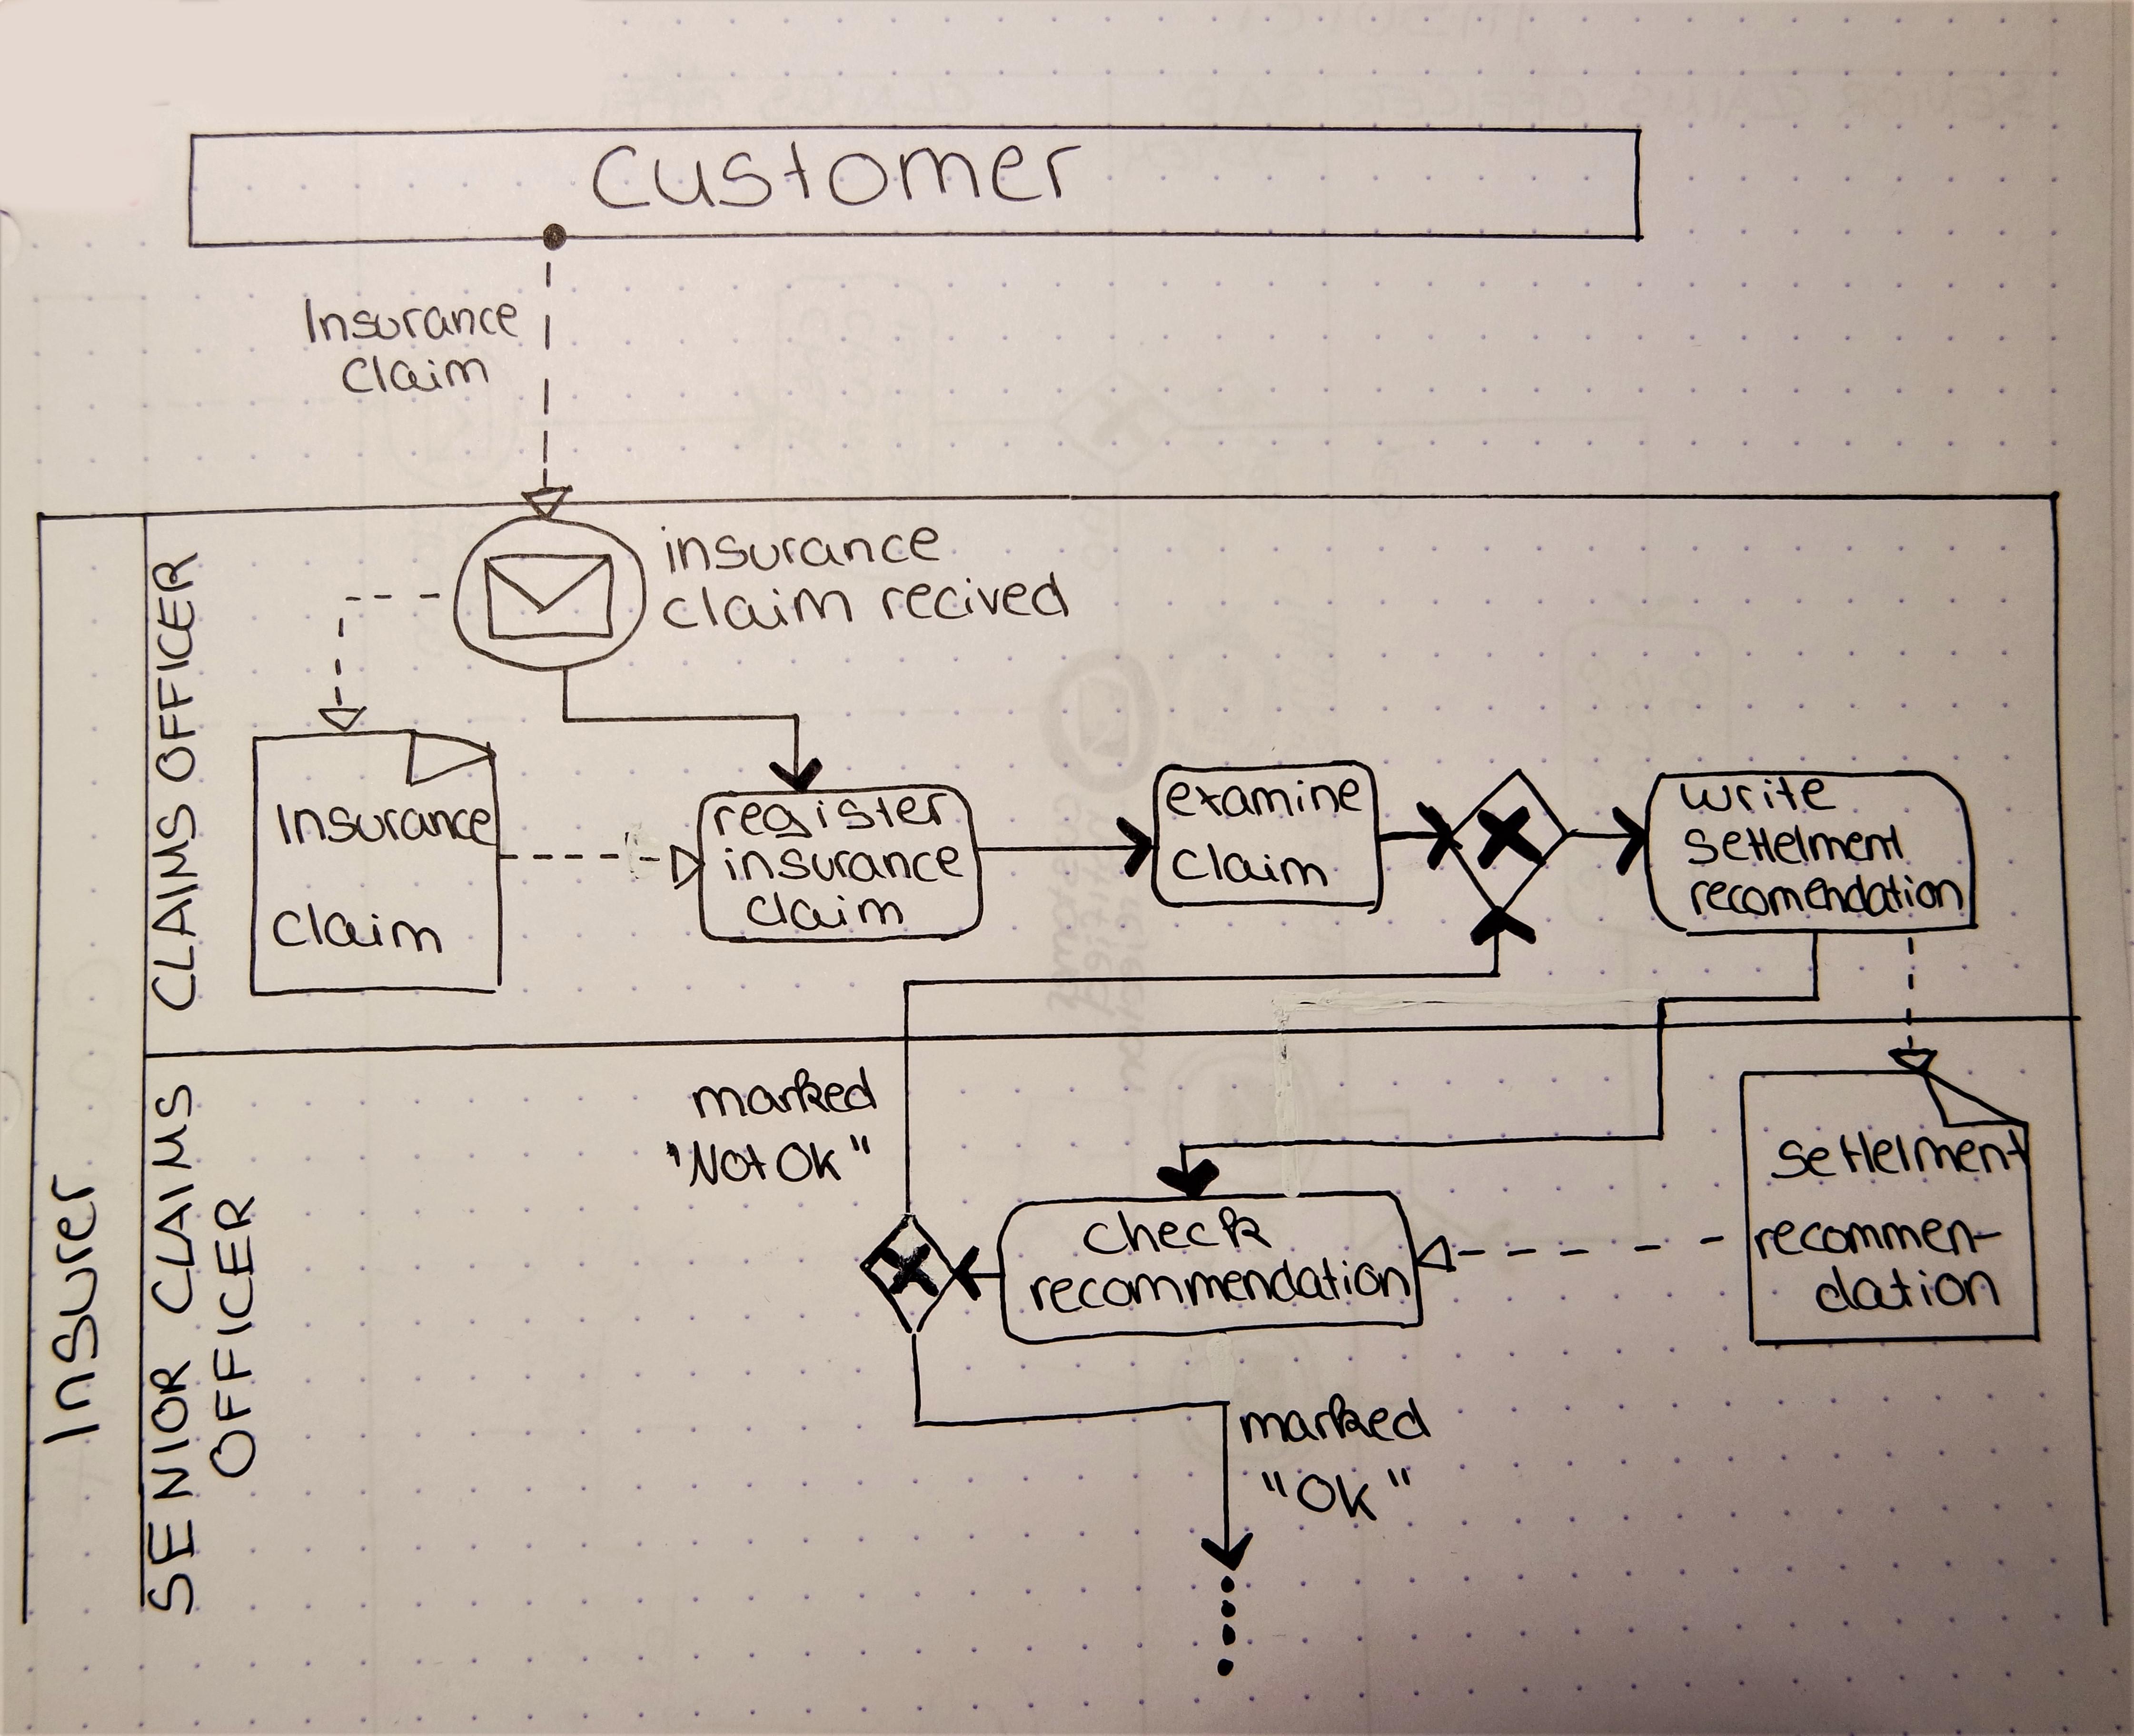 Customer
Insurance
Claim
insurance
claim recived
CLAIMS OFFICER
Insurance
claim
register
insurance
claim
examine
claim
write
settelment
recomendation
Insurer
SENIOR CLAIMS
OFFICER
marked
"Not Ok"
check
recommendation
settelment
recommen-
dation
marked
"Ok"